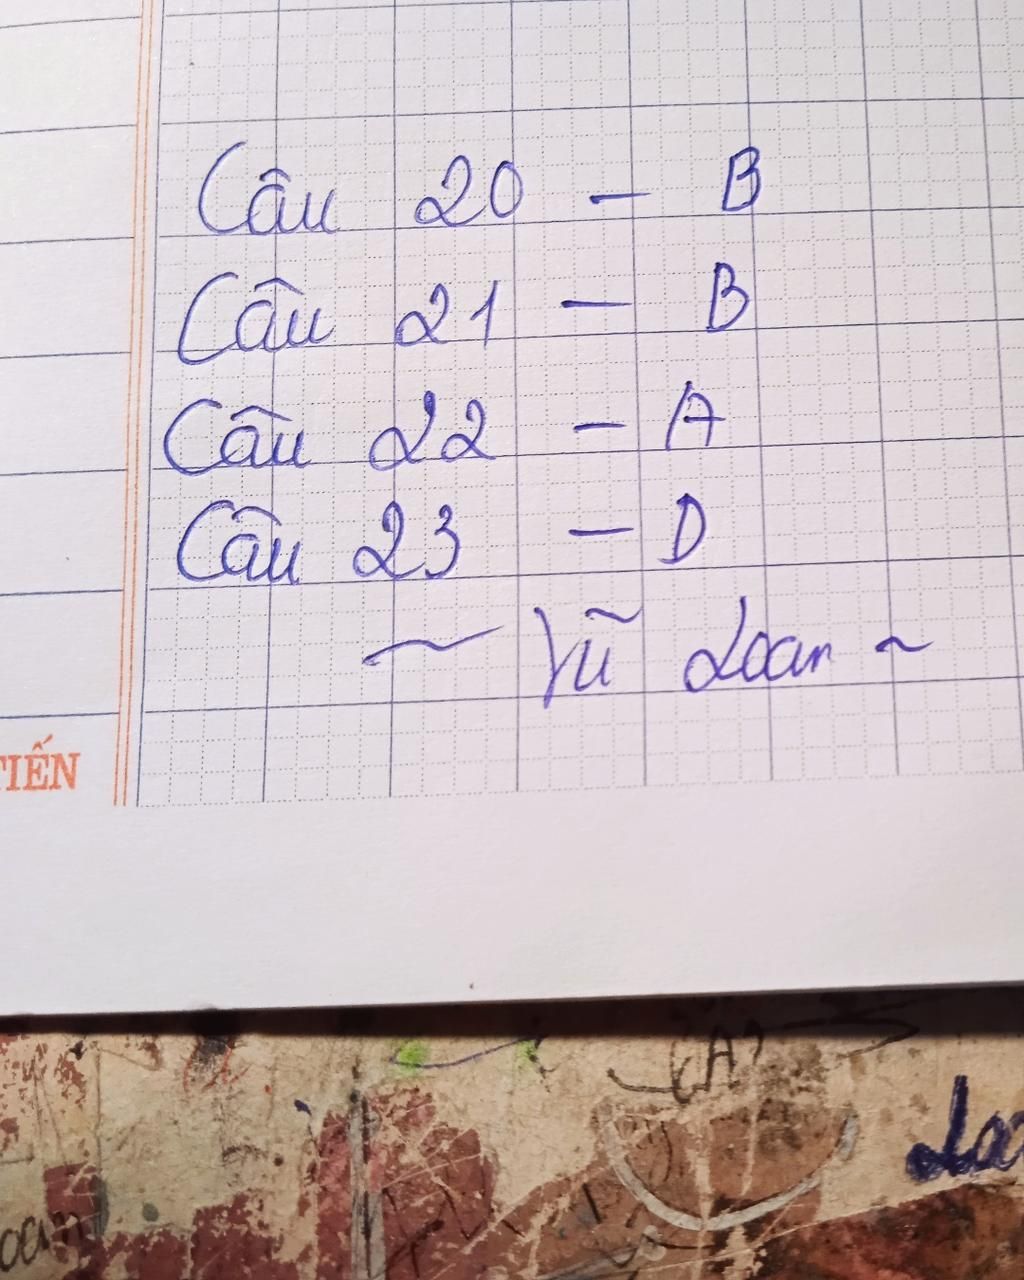 Câu 20 - B
Câu 21 - B
Câu 22 - A
Câu 23 - D
~ Vũ Loan ~
TIẾN
(A)
Loa
oan